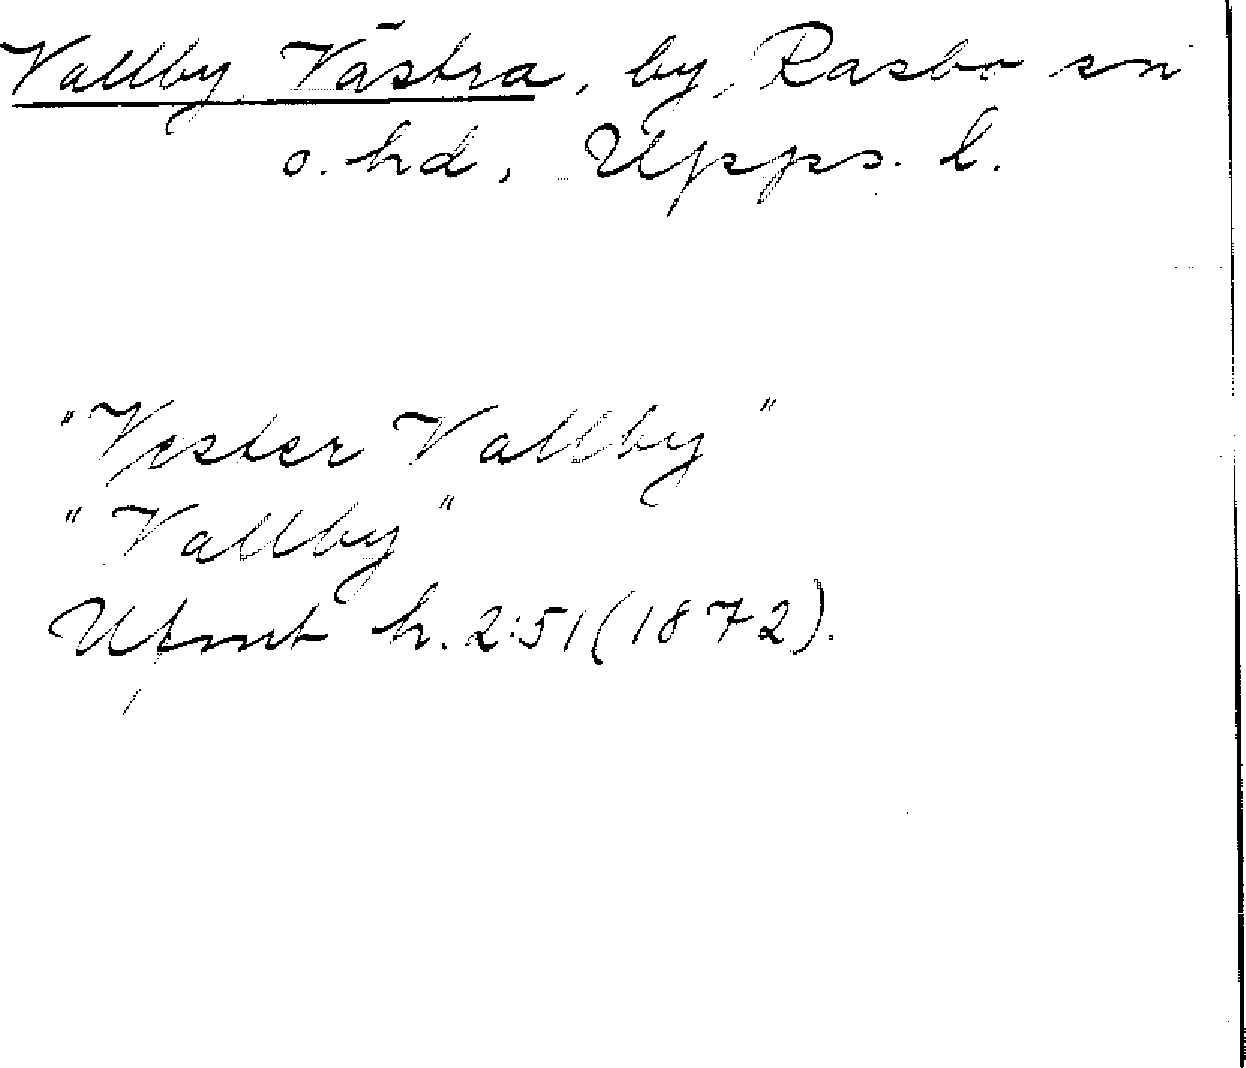 Vallby, Västra, by, Rasbo sn
o. hd, Upps. l.
"Vester Vallby"
"Vallby"
Ufmt h. 2:51 (1872).